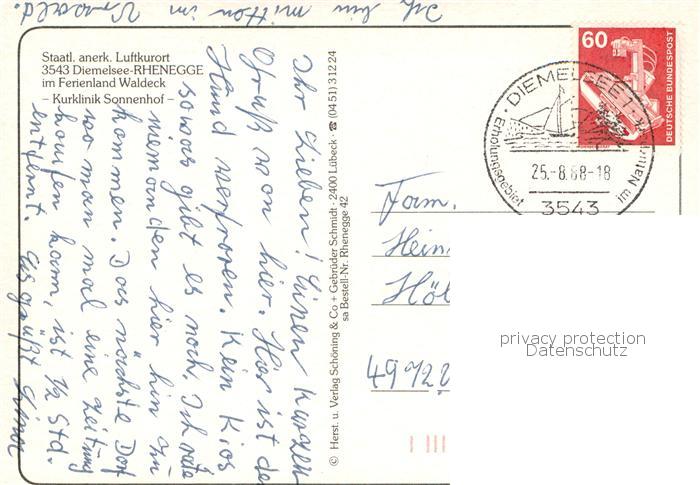 Ich bin mitten im
Urwald.
Staatl. anerk. Luftkurort
3543 Diemelsee-RHENEGGE
im Ferienland Waldeck
– Kurklinik Sonnenhof –
Ihr Lieben! Einen kurzen
Gruß von hier. Hier ist de
Hund verfroren. Kein Kios
sowas gibt es noch. Ich rate
niemanden hier hin zu
kommen. Das nächste Dorf
wo man mal eine Zeitung
kaufen kann, ist 1/2 Std.
entfernt. Es grüßt
© Herst. u. Verlag Schöning & Co + Gebrüder Schmidt · 2400 Lübeck ☎ (04 51) 3 12 24
sa Bestell-Nr. Rhenegge 42
60
DEUTSCHE BUNDESPOST
DIEMELSEE 1
Erholungsgebiet im Natur
25.-8.88-18
3543
Fam.
Hein
Höl
privacy protection
Datenschutz